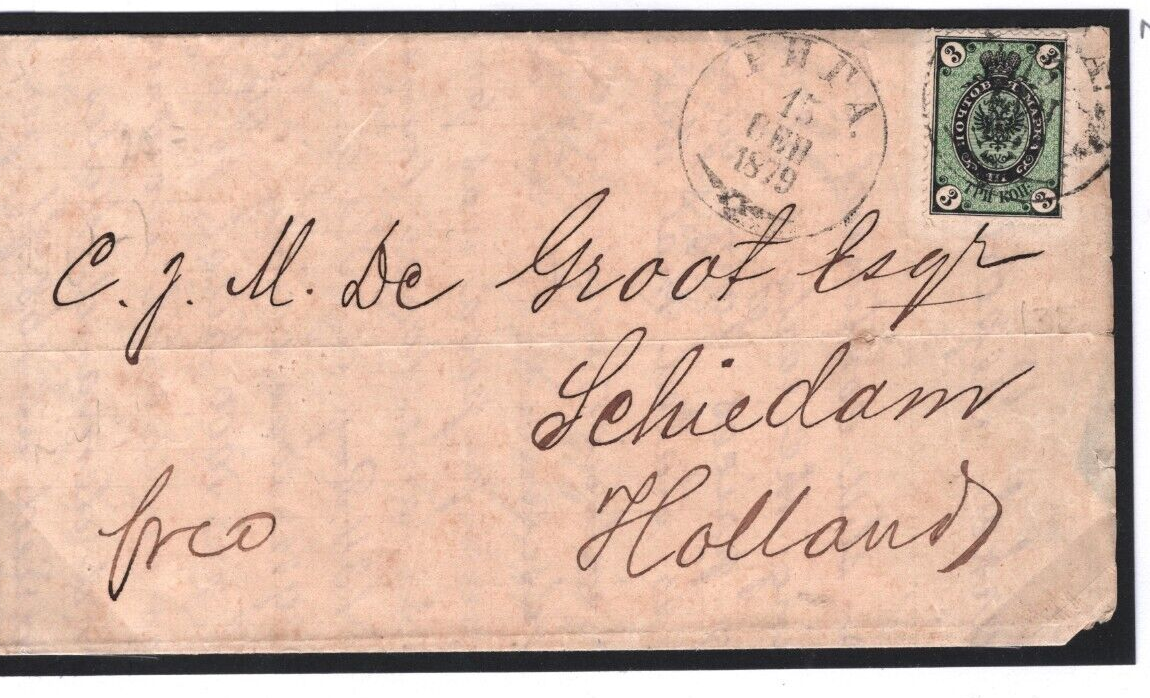 РИГА.
15
СЕН
1879
3 3
ПОЧТОВАЯ МАРКА
ТРИ КОП:
3 3
C. J. M. De Groot Esqr
Schiedam
Holland
frco